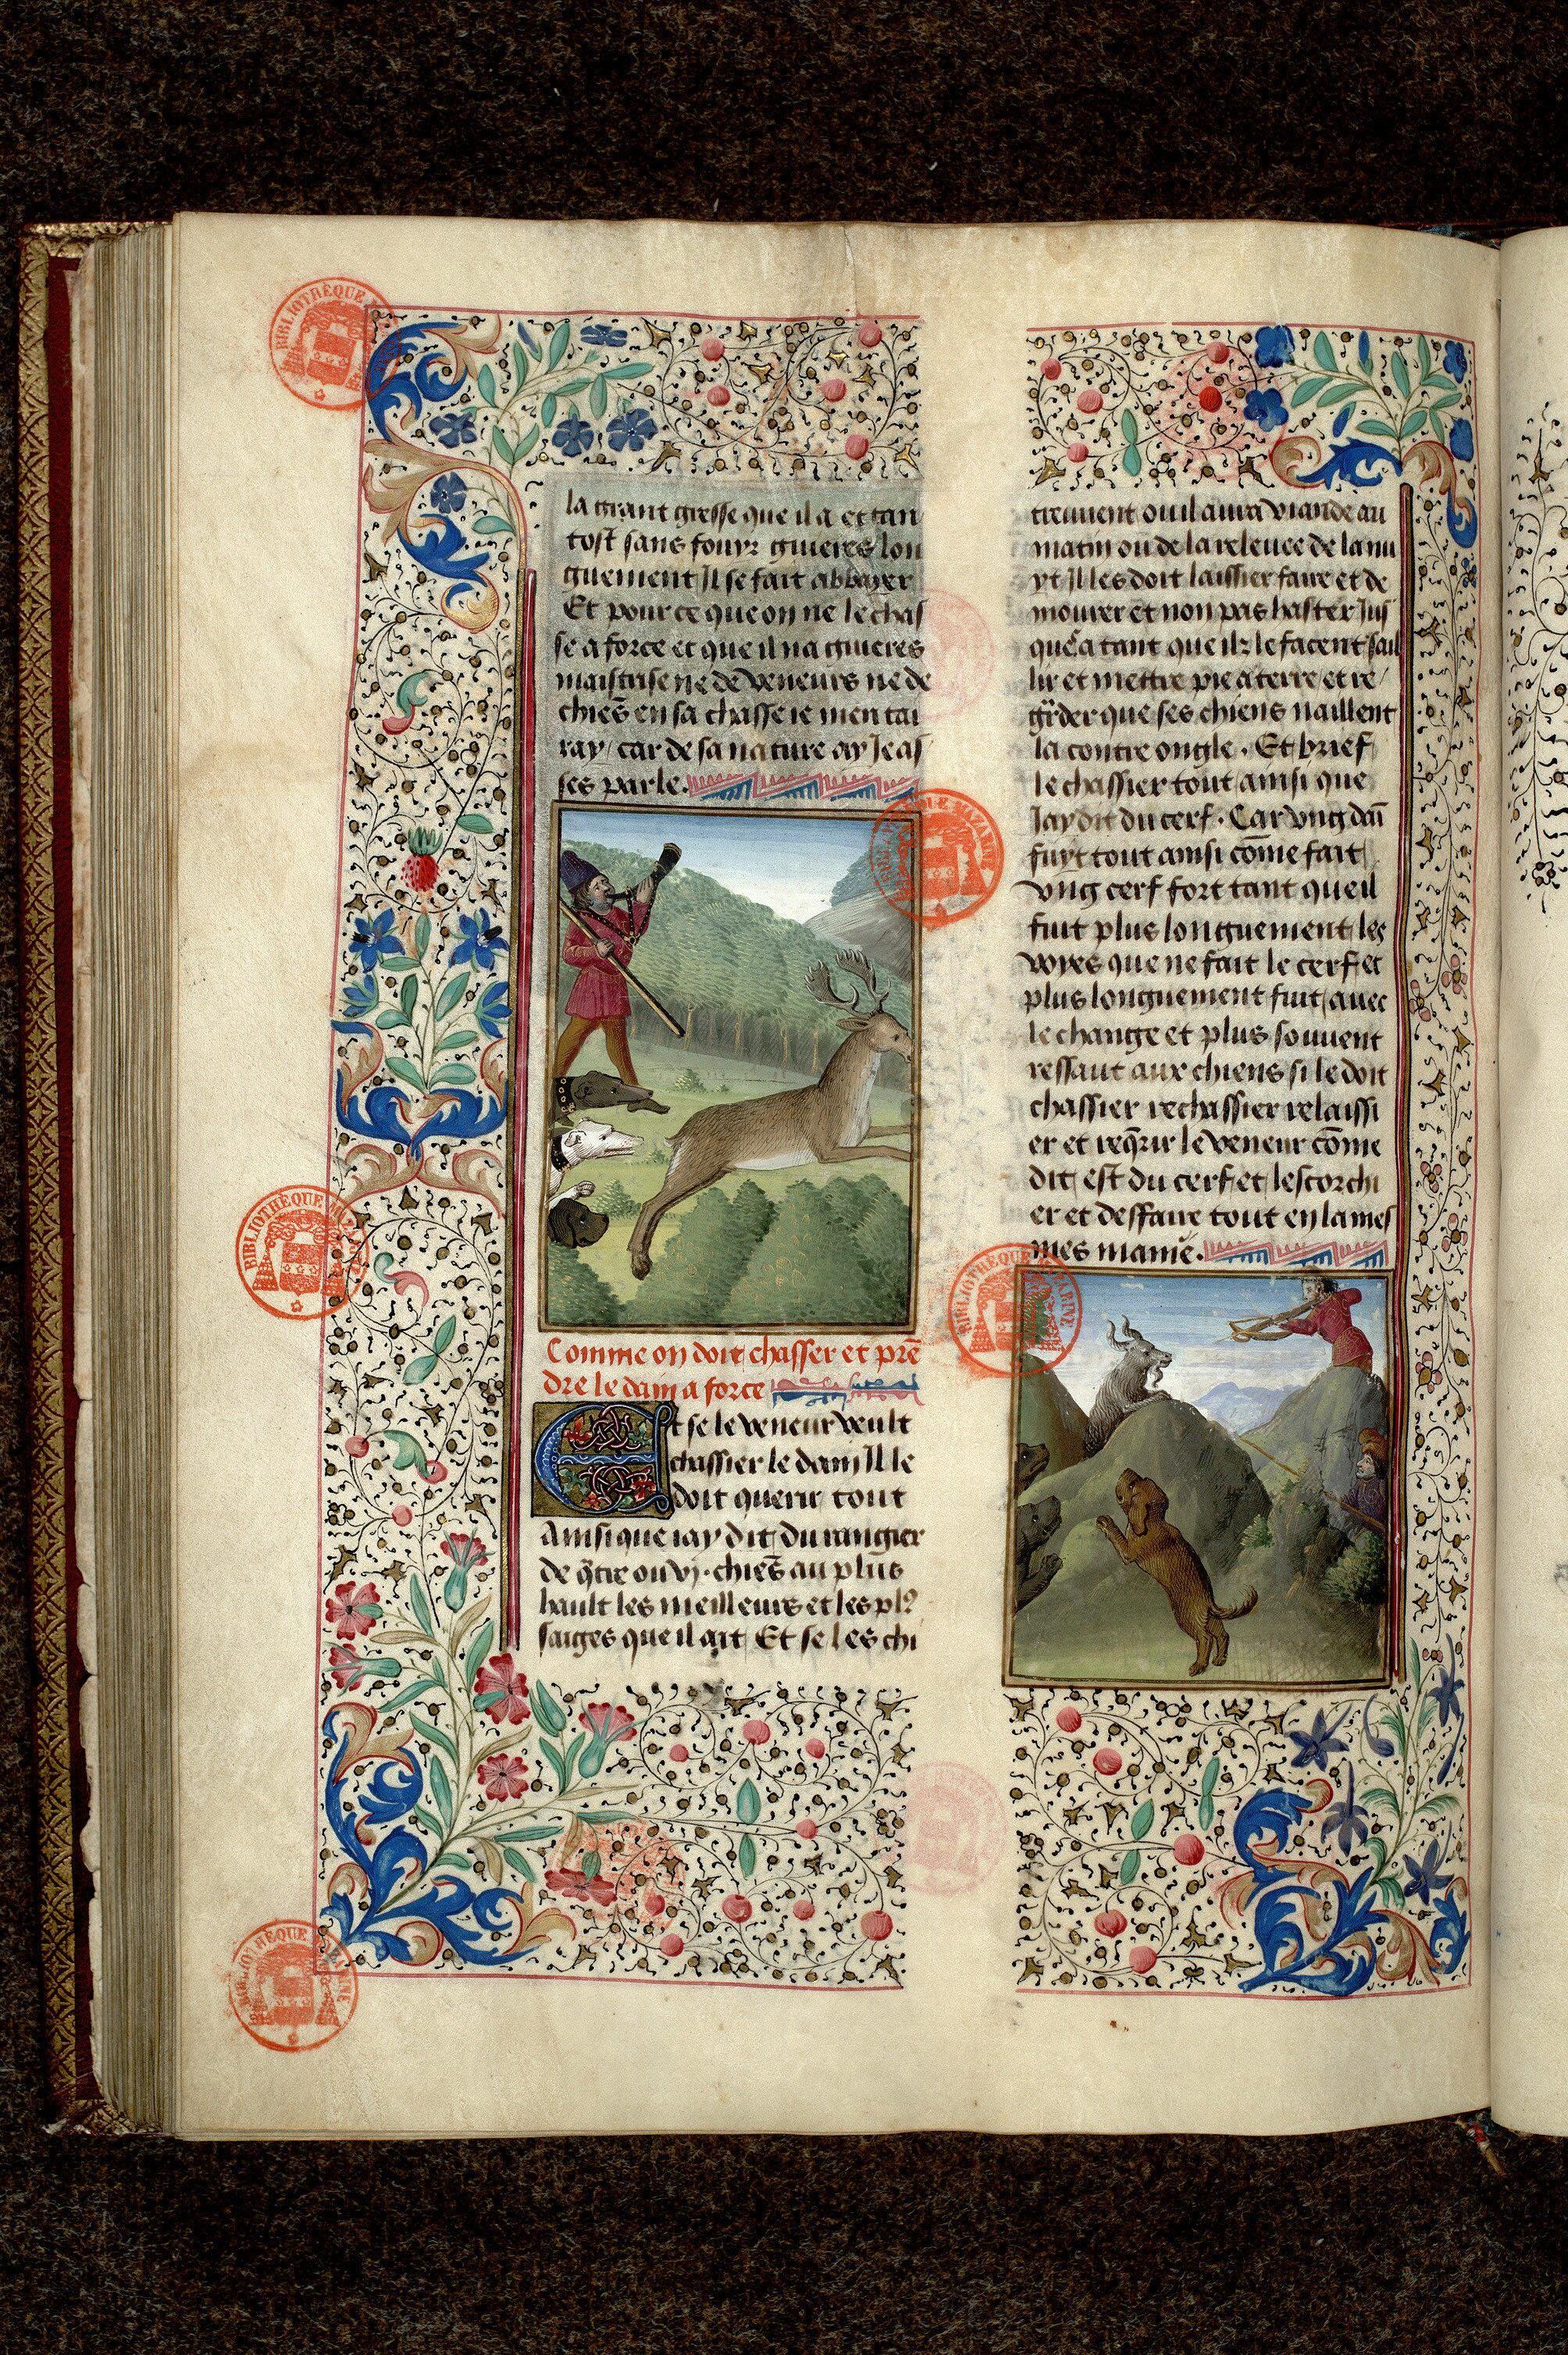 la grant gresse que il a et tan
tost sans fouyr guieres lon
guement Il se fait abbayer
Et pource que on ne le chas
se a force et que il na guieres
maistrise ne de veneurs ne de
chiēs en sa chasse ie men tai
ray / car de sa nature ay Je as
ses parle.
Comme on doit chasser et prē
dre le dain a force
Et se le veneur veult
chassier le dain Il le
doit querir tout
Ainsi que iay dit du rangier
de q̄tre ou vj. chiēs au plus
hault les meilleurs et les pl9
saiges que il ait Et se les chi
treuuent ou il aura viande au
matin ou de la releuee de la nu
yt Il les doit laissier faire et de
mourer et non pas haster Jus
ques a tant que ilz le facent sail
lir et mettre pie a terre et re
garder que ses chiens naillent
la contre ongle. Et brief
le chassier tout ainsi que
Jay dit du cerf. Car vng dāī
fuyt tout ainsi cōme fait
vng cerf fort tant que il
fuit plus longuement les
voyes que ne fait le cerf et
plus longuement fuit auec
le change et plus souuent
ressaut aux chiens si le doit
chassier rechassier relaissi
er et reqrir le veneur cōme
dit est du cerf et lescorchi
er et deffaire tout en la mes
mes manie.
BIBLIOTHEQUE
BIBLIOTHEQUE MAZARINE
BIBLIOTHEQUE
BIBLIOTHEQUE MAZARINE
BIBLIOTHEQUE